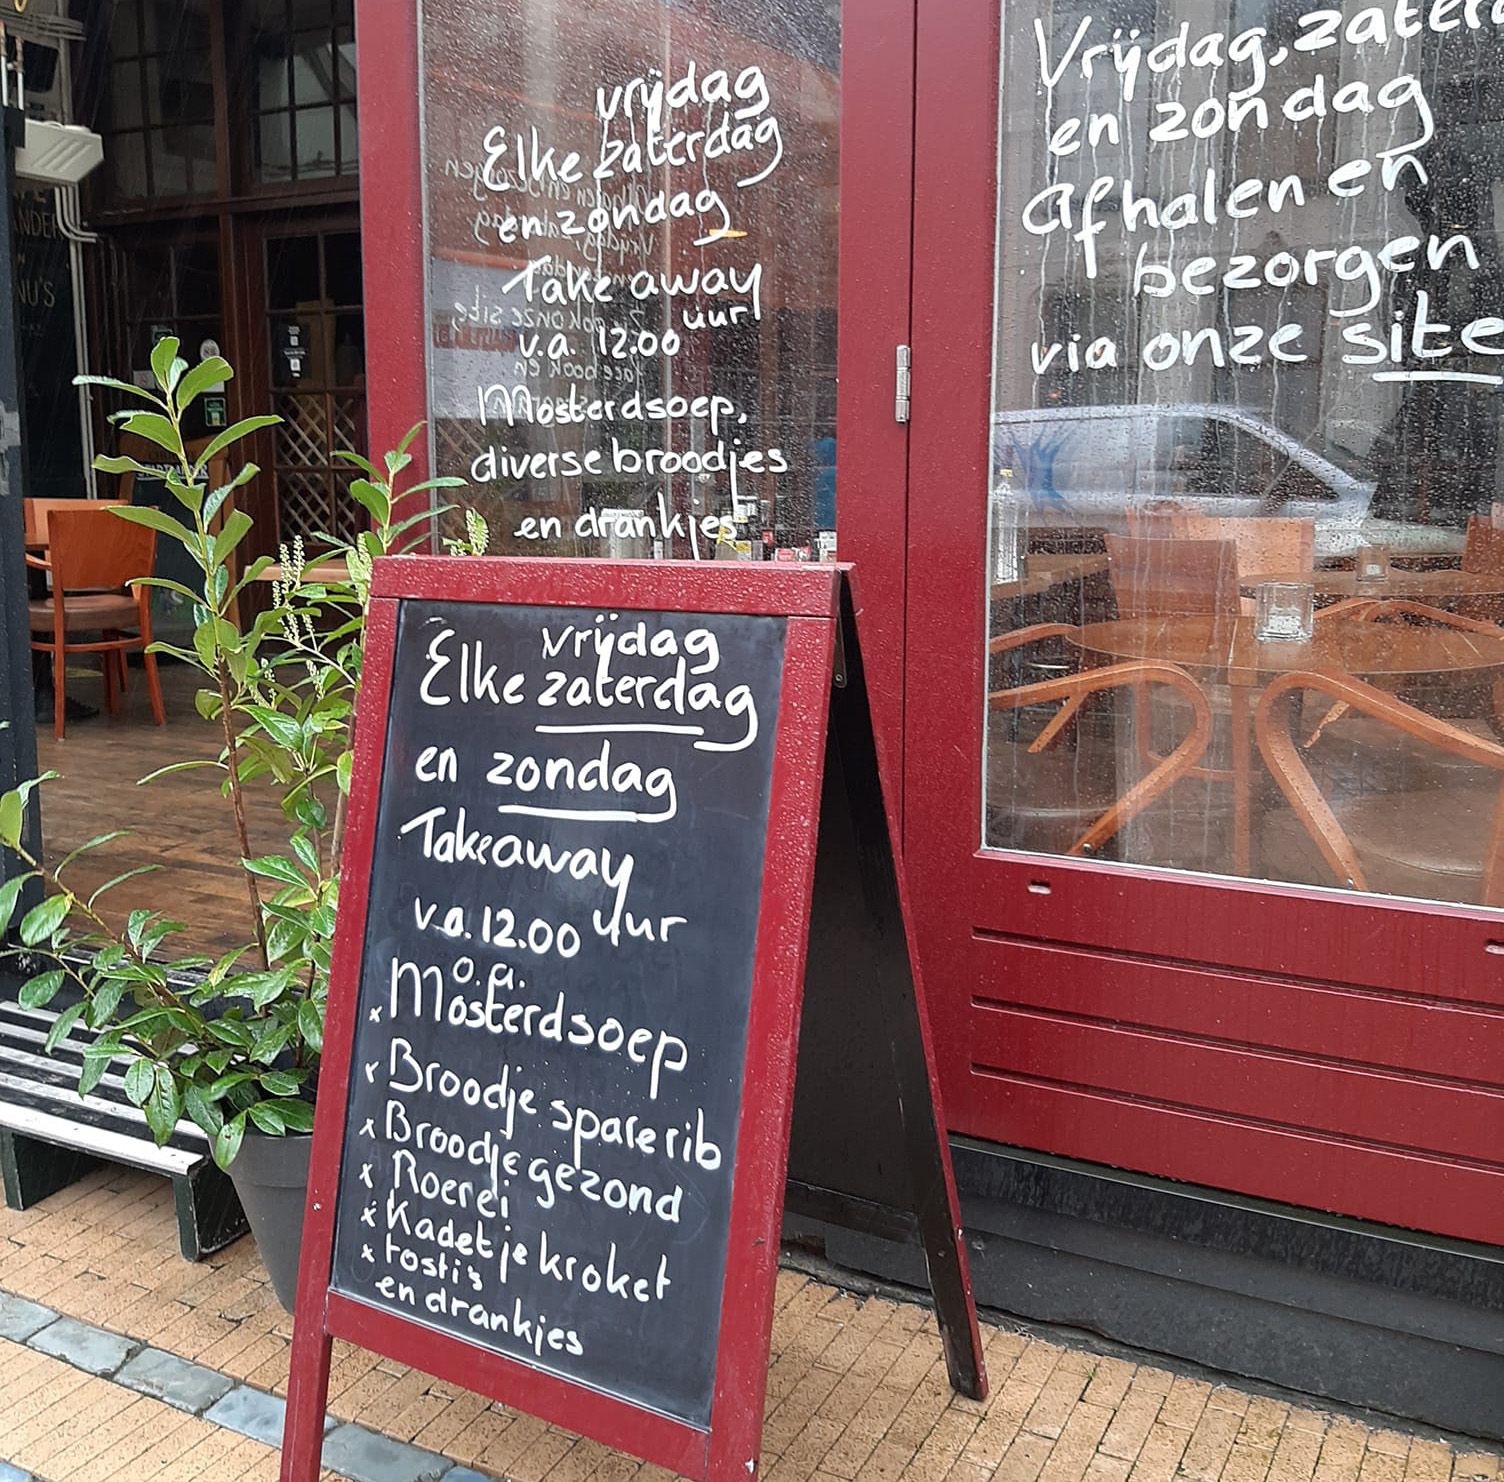 vrijdag
Elke zaterdag
en zondag
Take away
v.a. 12.00 uur
Mosterdsoep,
diverse broodjes
en drankjes
Vrijdag, zater
en zondag
afhalen en
bezorgen
via onze site
vrijdag
Elke zaterdag
en zondag
Takeaway
v.a. 12.00 uur
o.a.
x Mosterdsoep
x Broodje sparerib
x Broodje gezond
x Roerei
x Kadetje kroket
x tosti's
en drankjes
NU'S